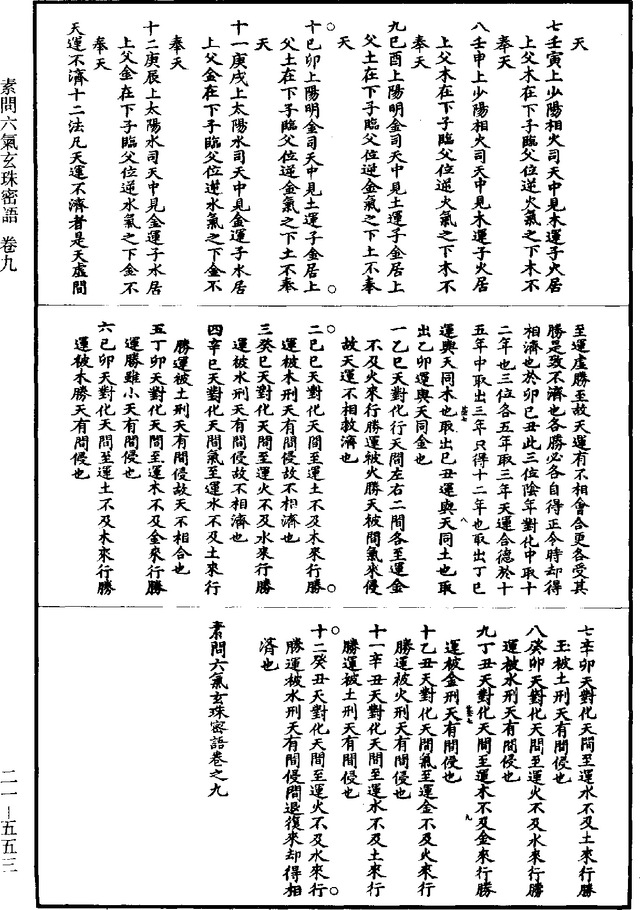 天
七壬寅上少陽相火司天中見木運子火居
上父木在下子臨父位逆火氣之下木不
奉天
八壬申上少陽相火司天中見木運子火居
上父木在下子臨父位逆火氣之下木不
奉天
九己酉上陽明金司天中見土運子金居上
父土在下子臨父位逆金氣之下土不奉
天
十己卯上陽明金司天中見土運子金居上
父土在下子臨父位逆金氣之下土不奉
天
十一庚戌上太陽水司天中見金運子水居
上父金在下子臨父位逆水氣之下金不
奉天
十二庚辰上太陽水司天中見金運子水居
上父金在下子臨父位逆水氣之下金不
奉天
天運不濟十二法凡天運不濟者是天虛間
至運虛勝至故天運有不相會合更各受其
勝是致不濟也各勝必各自得正令時却得
相濟也於卯巳丑此三位陰年對化中取十
二年也三位各五年取三年天運合德於十
五年中取出三年只得十二年也取出丁巳
運與天同木也取出己丑運與天同土也取
出乙卯運與天同金也
一乙巳天對化行天間左右二間各至運金
不及火來行勝運被火勝天被間氣來侵
故天運不相救濟也
二己巳天對化天間至運土不及木來行勝
運被木刑天有間侵故不相濟也
三癸巳天對化天間至運火不及水來行勝
運被水刑天有間侵故不相濟也
四辛巳天對化天間氣至運水不及土來行
勝運被土刑天有間侵故天不相合也
五丁卯天對化天間至運木不及金來行勝
運勝雖小天有間侵也
六己卯天對化天間至運土不及木來行勝
運被木勝天有間侵也
七辛卯天對化天間至運水不及土來行勝
玉被土刑天有間侵也
八癸卯天對化天間至運火不及水來行勝
運被水刑天有間侵也
九丁丑天對化天間至運木不及金來行勝
運被金刑天有間侵也
十乙丑天對化天間氣至運金不及火來行
勝運被火刑天有間侵也
十一辛丑天對化天間至運水不及土來行
勝運被土刑天有間侵也
十二癸丑天對化天間至運火不及水來行
勝運被水刑天有間侵間退復來却得相
濟也
素問六氣玄珠密語卷之九
素問六氣玄珠密語 卷九
二一—五五三